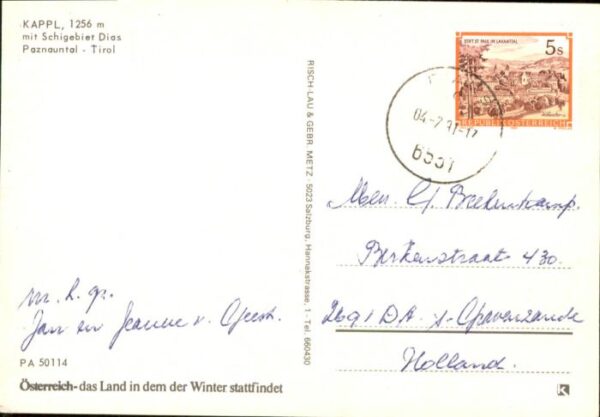 KAPPL, 1256 m
mit Schigebiet Dias
Paznauntal - Tirol
STIFT ST. PAUL IM LAVANTTAL
5 S
REPUBLIK ÖSTERREICH
04-2 91-17
6551
RISCH-LAU & GEBR. METZ · 5023 Salzburg, Hannakstrasse, 1 · Tel. 660430
Mevr. Breekenkamp.
Berkenstraat 430.
2691 DA. s-Gravenzande
Holland.
m. h. gr.
Jan en Jeanne v. Geest.
PA 50114
Österreich-das Land in dem der Winter stattfindet
K